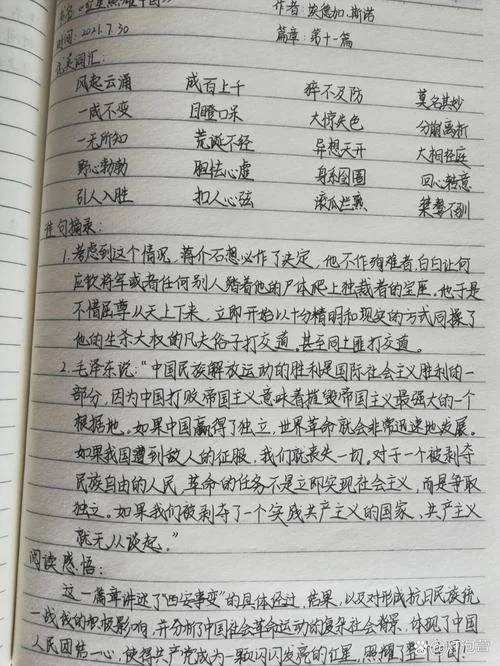 书名《红星照耀中国》 作者:埃德加.斯诺
时间:2021.7.30 篇章:第十一篇
优美词汇:
风起云涌 成百上千 猝不及防 莫名其妙
一成不变 目瞪口呆 大惊失色 分崩离析
一无所知 荒诞不经 异想天开 大相径庭
野心勃勃 胆怯心虚 身系囹圄 回心转意
引人入胜 扣人心弦 滚瓜烂熟 桀骜不驯
佳句摘录:
1.考虑到这个情况,蒋介石想必作了决定,他不作殉难者,白白让何
应钦将军或者任何别人踏着他的尸体爬上独裁者的宝座。他于是
不惜屈尊从天上下来,立即开始以十分精明和现实的方式同操了
他的生杀大权的凡夫俗子打交道。甚至同土匪打交道。
2.毛泽东说:“中国民族解放运动的胜利是国际社会主义胜利的一
部分,因为中国打败帝国主义意味着摧毁帝国主义最强大的一个
根据地。如果中国赢得了独立,世界革命就会非常迅速地发展。
如果我国遭到敌人的征服,我们就丧失一切。对于一个被剥夺
民族自由的人民,革命的任务不是立即实现社会主义,而是争取
独立。如果我们被剥夺了一个实践共产主义的国家,共产主义
就无从谈起。”
阅读感悟:
这一篇章讲述了“西安事变”的具体经过、结果,以及对形成抗日民族统
一战线的积极影响,并分析了中国社会革命运动的复杂社会背景,体现了中国
人民团结一心,使得共产党成为一颗闪闪发亮的红星,照耀了中国!